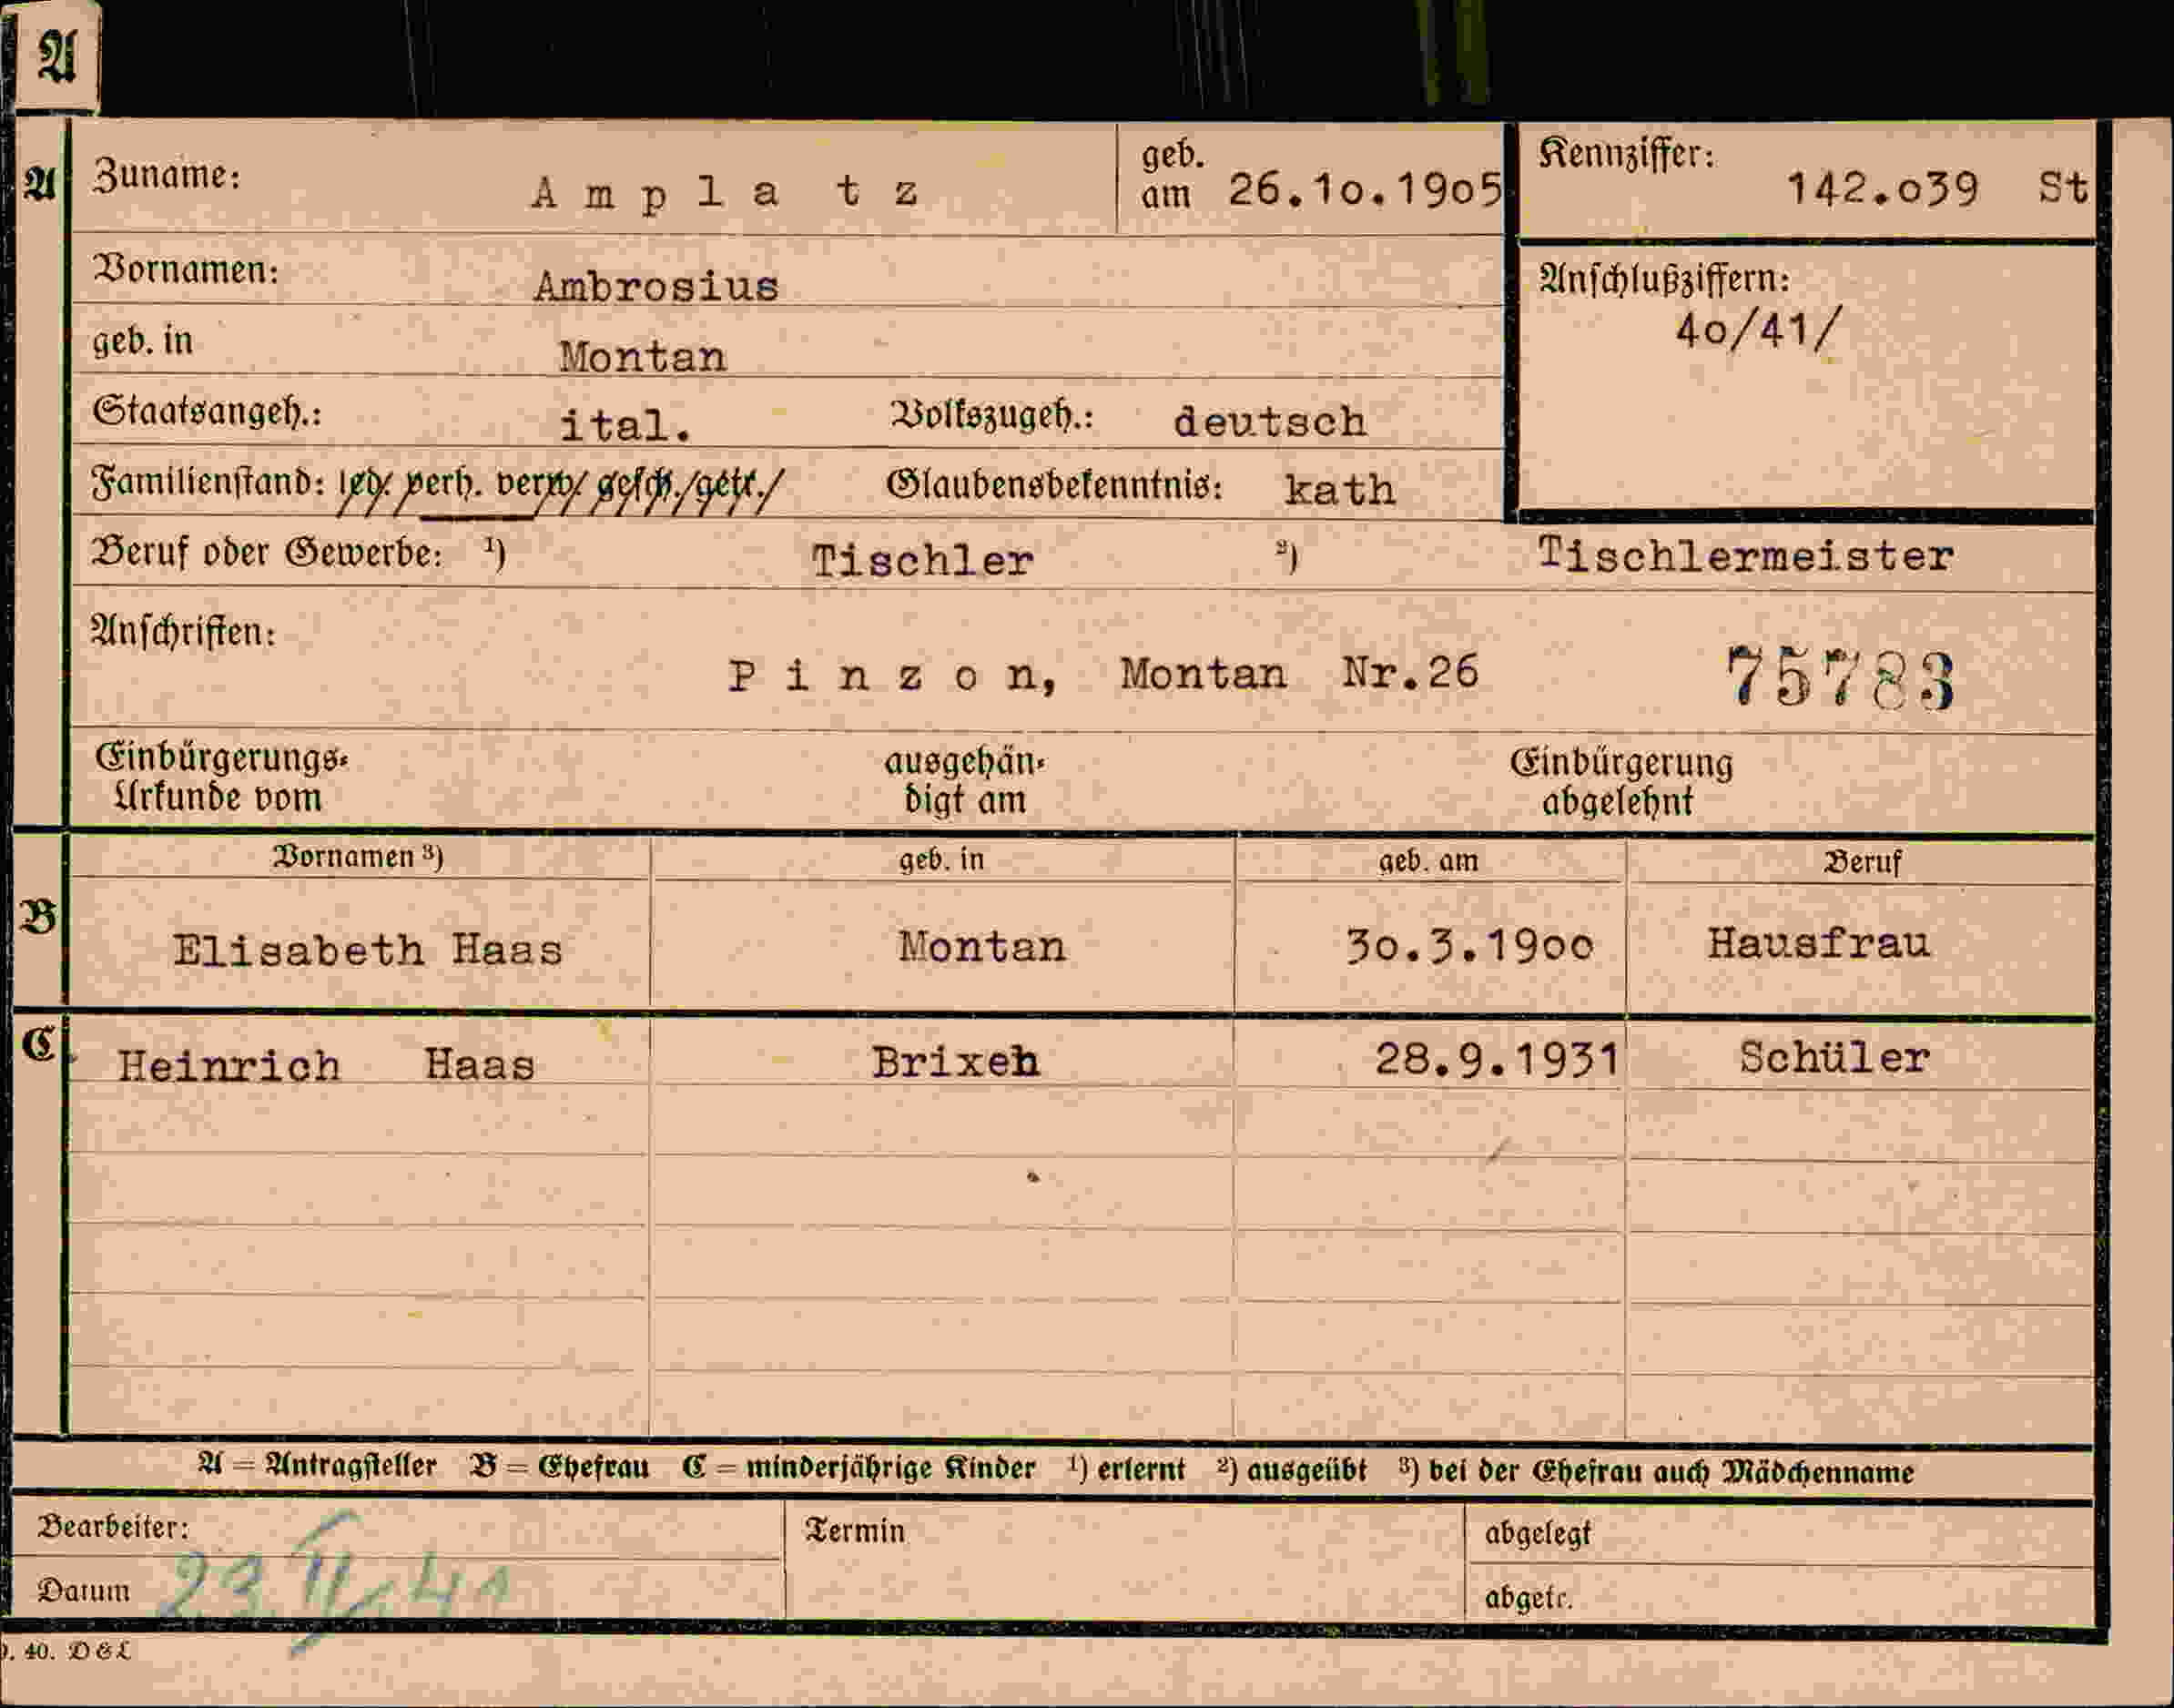 A
A Zuname: A m p l a t z geb. am 26.10.1905 Kennziffer: 142.039 St
Vornamen: Ambrosius Anschlußziffern: 40/41/
geb. in Montan
Staatsangeh.: ital. Volkszugeh.: deutsch
Familienstand: led. verh. verw. gesch./getr./ Glaubensbekenntnis: kath
Beruf oder Gewerbe: ¹) Tischler ²) Tischlermeister
Anschriften: P i n z o n, Montan Nr.26 75783
Einbürgerungs- Urkunde vom ausgehän- digt am Einbürgerung abgelehnt
Vornamen ³) geb. in geb. am Beruf
B Elisabeth Haas Montan 30.3.1900 Hausfrau
C Heinrich Haas Brixen 28.9.1931 Schüler
A = Antragsteller B = Ehefrau C = minderjährige Kinder ¹) erlernt ²) ausgeübt ³) bei der Ehefrau auch Mädchenname
Bearbeiter: Termin abgelegt
Datum abgetr.
40. DGL